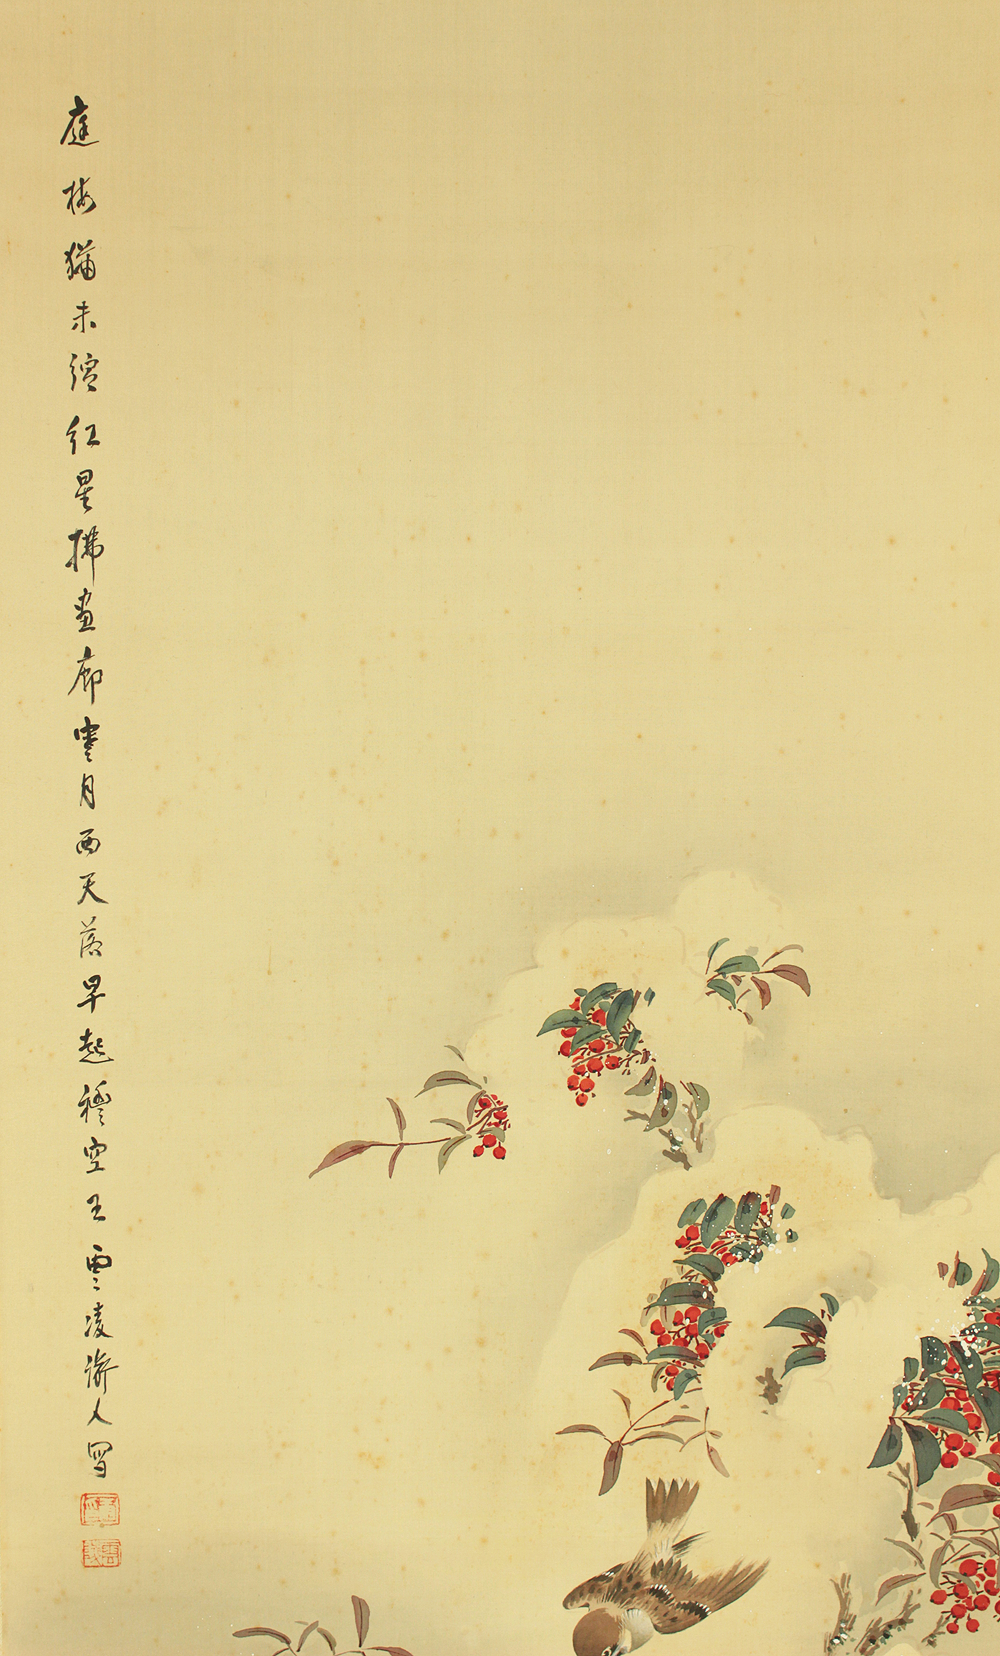 庭梅猶未綻紅星拂画廊寒月西天落早起禮空王雲凌人写